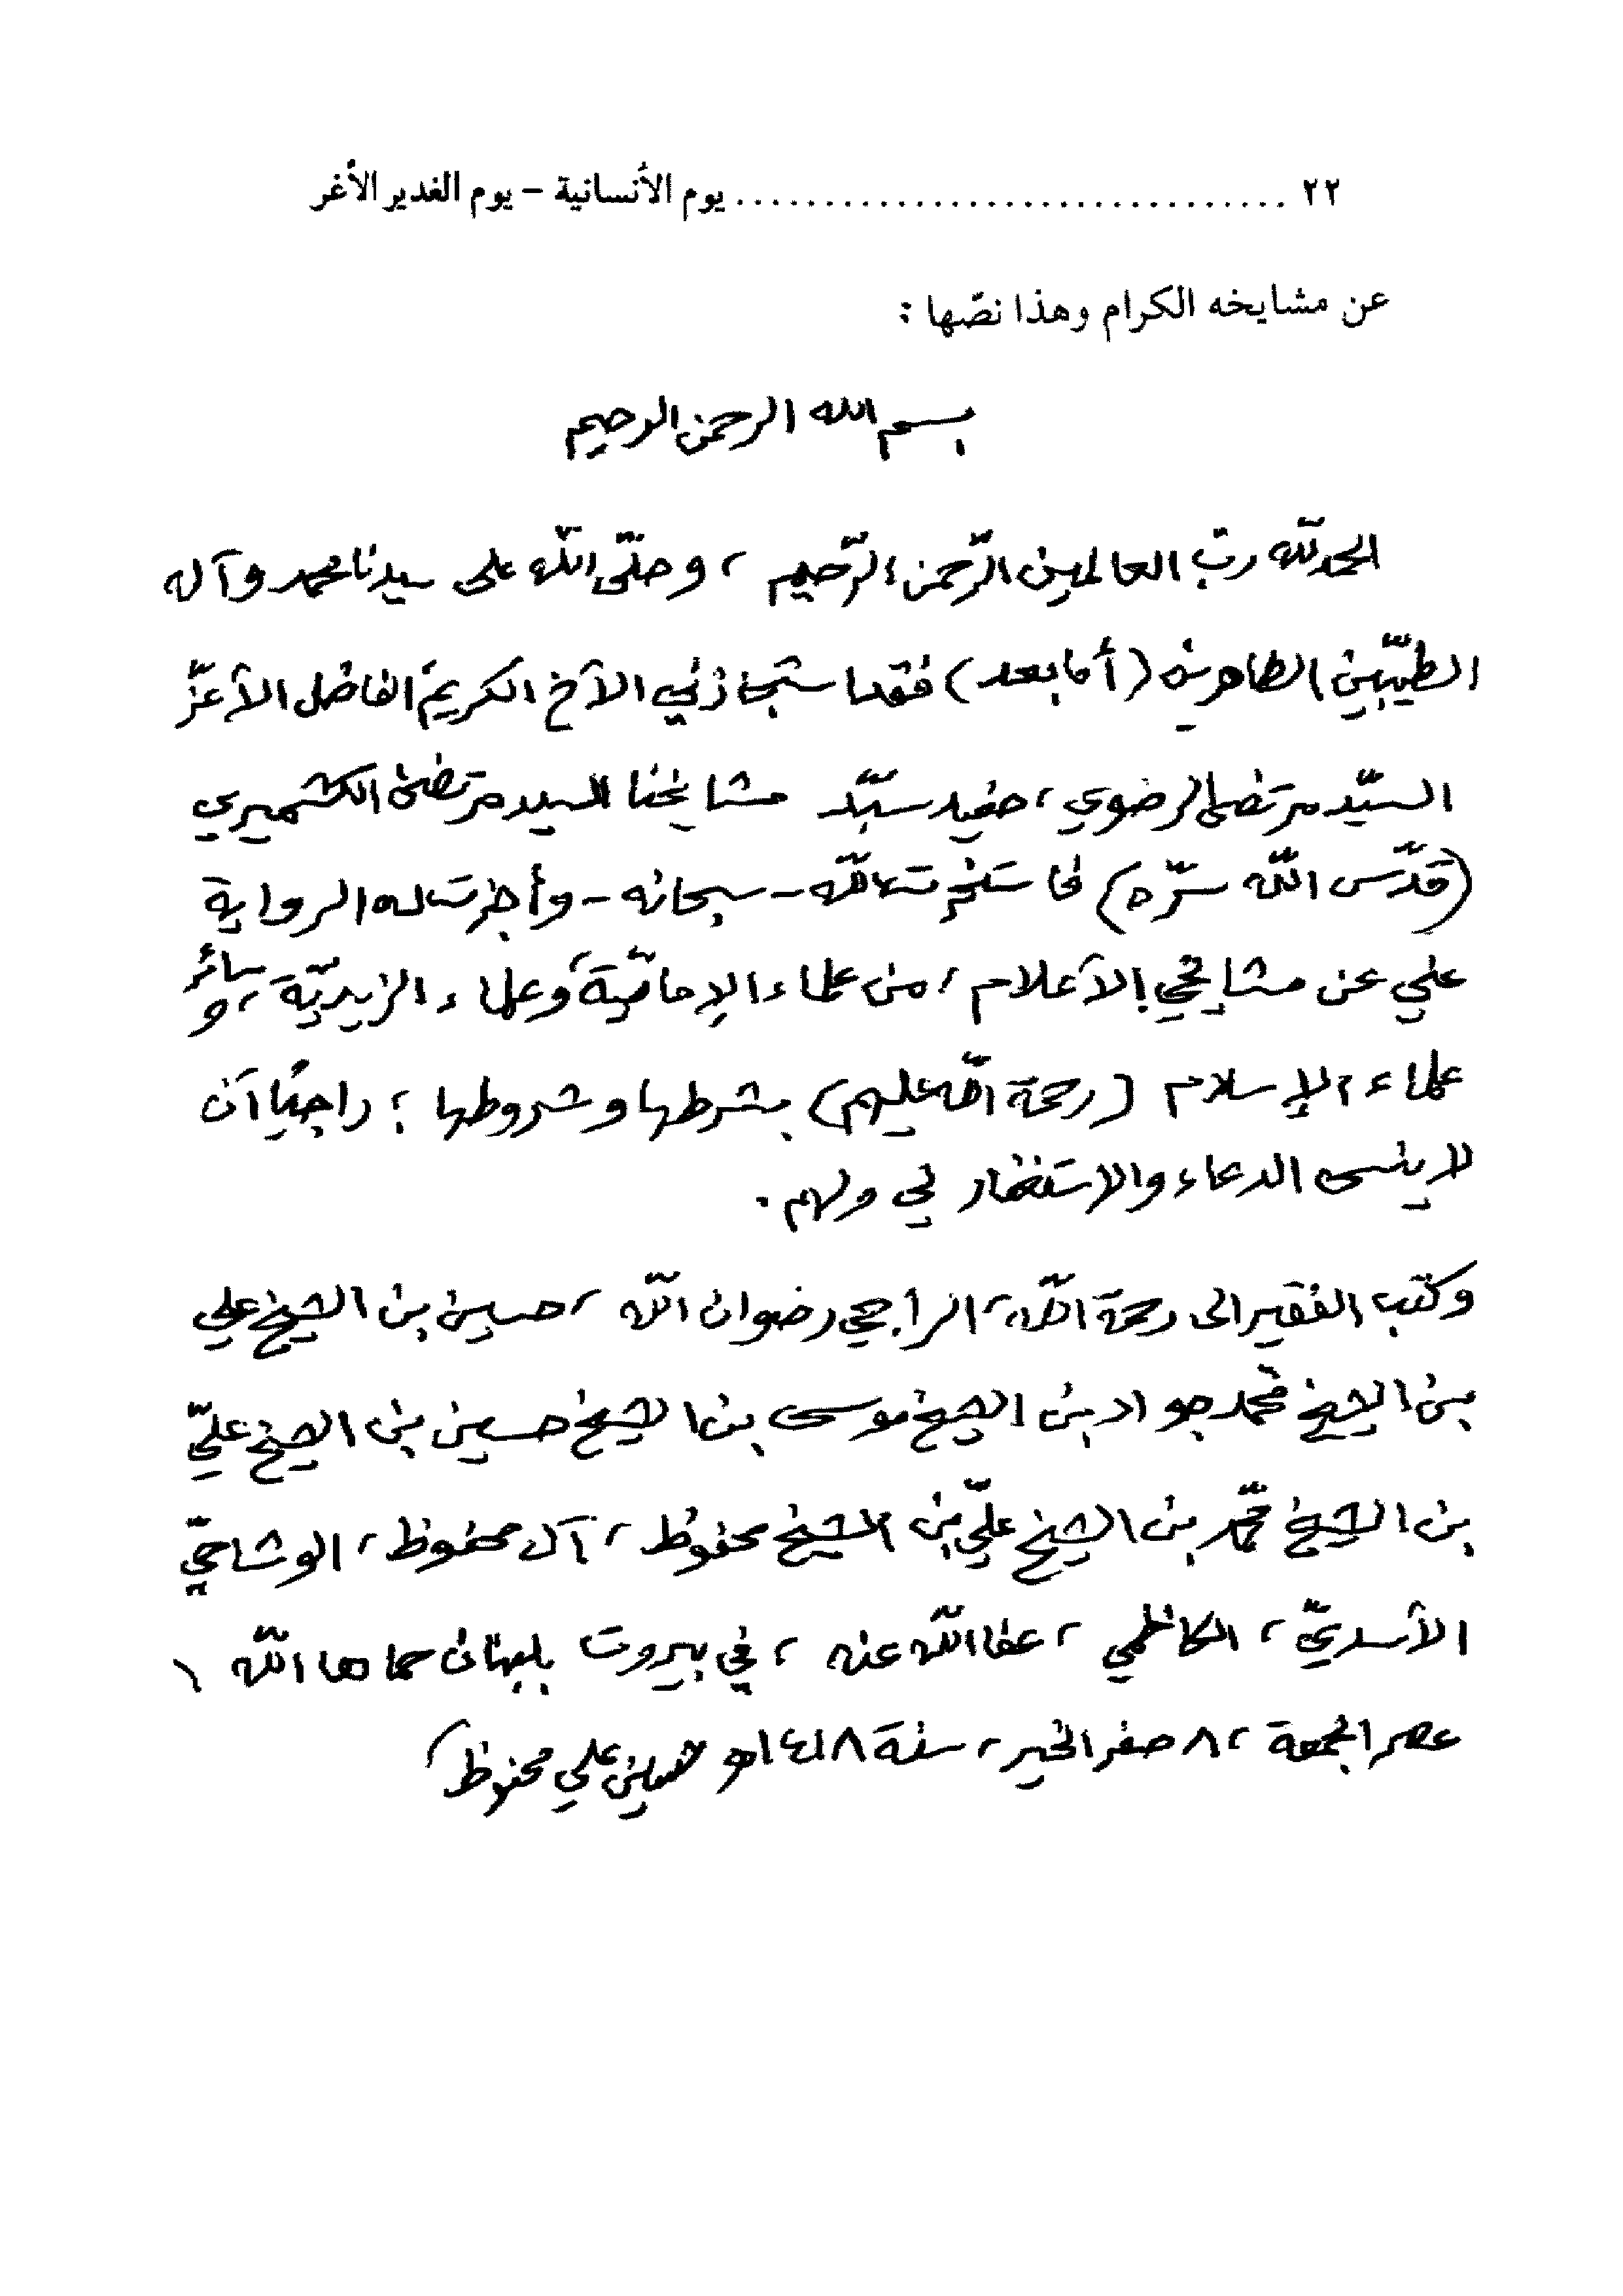 ٢٢ .............................. يوم الأنسانية – يوم الغدير الأغر
عن مشايخه الكرام وهذا نصّها :
بسم الله الرحمن الرحيم
الحمد لله ربّ العالمين الرّحمن الرّحيم ، وصلّى الله على سيدنا محمد وآله
الطيّبين الطاهرين (أما بعد) فقد استجازني الأخ الكريم الفاضل الأعزّ
السيّد مرتضى الرضوي ، حفيد سيّد مشايخنا السيد مرتضى الكشميري
(قدّس الله سرّه) فاستخرت الله - سبحانه - وأجزت له الرواية
عنّي عن مشايخي الأعلام ، من علماء الإماميّة ، وعلماء الزيديّة ، وسائر
علماء الإسلام (رحمة الله عليهم) بشرطها وشروطها ؛ راجيًا أن
لا ينسى الدعاء والاستغفار لي ولهم .
وكتب الفقير الى رحمة الله ، الراجي رضوان الله ، حسين بن الشيخ علي
بن الشيخ محمد جواد بن الشيخ موسى بن الشيخ حسين بن الشيخ عليّ
بن الشيخ محمّد بن الشيخ عليّ بن الشيخ محفوظ ، آل محفوظ ، الوشاحيّ
الأسديّ ، الكاظمي ، عفا الله عنه ، في بيروت بلبنان حماها الله ،
عصر الجمعة ، ٨ صفر الخير ، سنة ١٤١٨ هـ حسين علي محفوظ